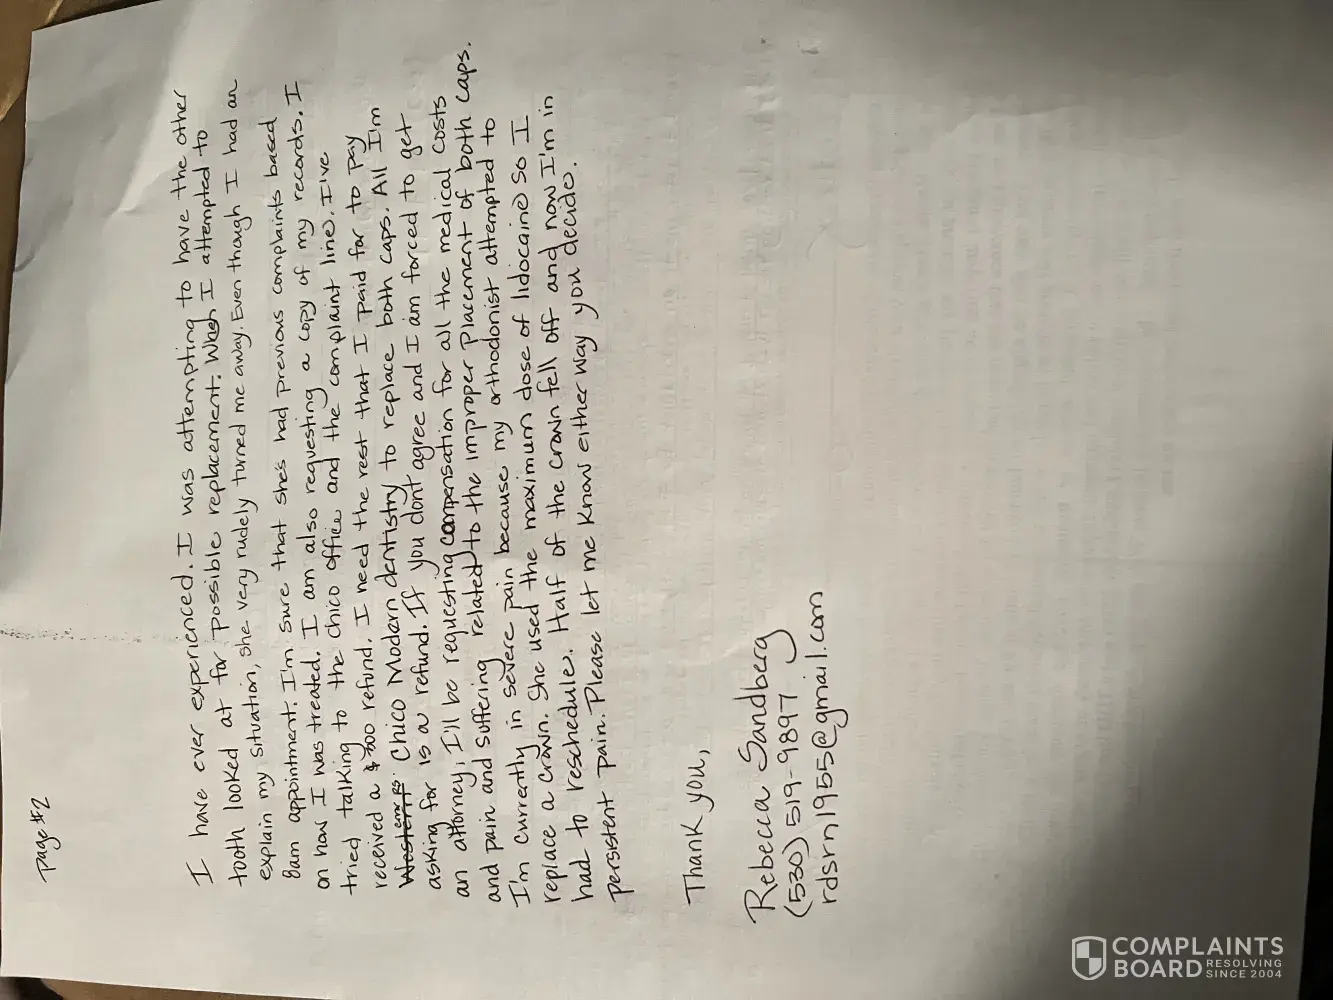 Page #2
I have ever experienced. I was attempting to have the other
tooth looked at for possible replacement. When I attempted to
explain my situation, she very rudely turned me away. Even though I had an
8am appointment. I'm sure that she's had previous complaints based
on how I was treated. I am also requesting a copy of my records. I
tried talking to the Chico office and the complaint line. I've
received a $300 refund. I need the rest that I paid for to pay
Chico Modern dentistry to replace both caps. All I'm
asking for is a refund. If you don't agree and I am forced to get
an attorney, I'll be requesting compensation for all the medical costs
and pain and suffering related to the improper placement of both caps.
I'm currently in severe pain because my orthodonist attempted to
replace a crown. She used the maximum dose of lidocaine so I
had to reschedule. Half of the crown fell off and now I'm in
persistent pain. Please let me know either way you decide.
Thank you,
Rebecca Sandberg
(530) 519-9897
rdsrn1955@gmail.com
COMPLAINTS
BOARD RESOLVING
SINCE 2004